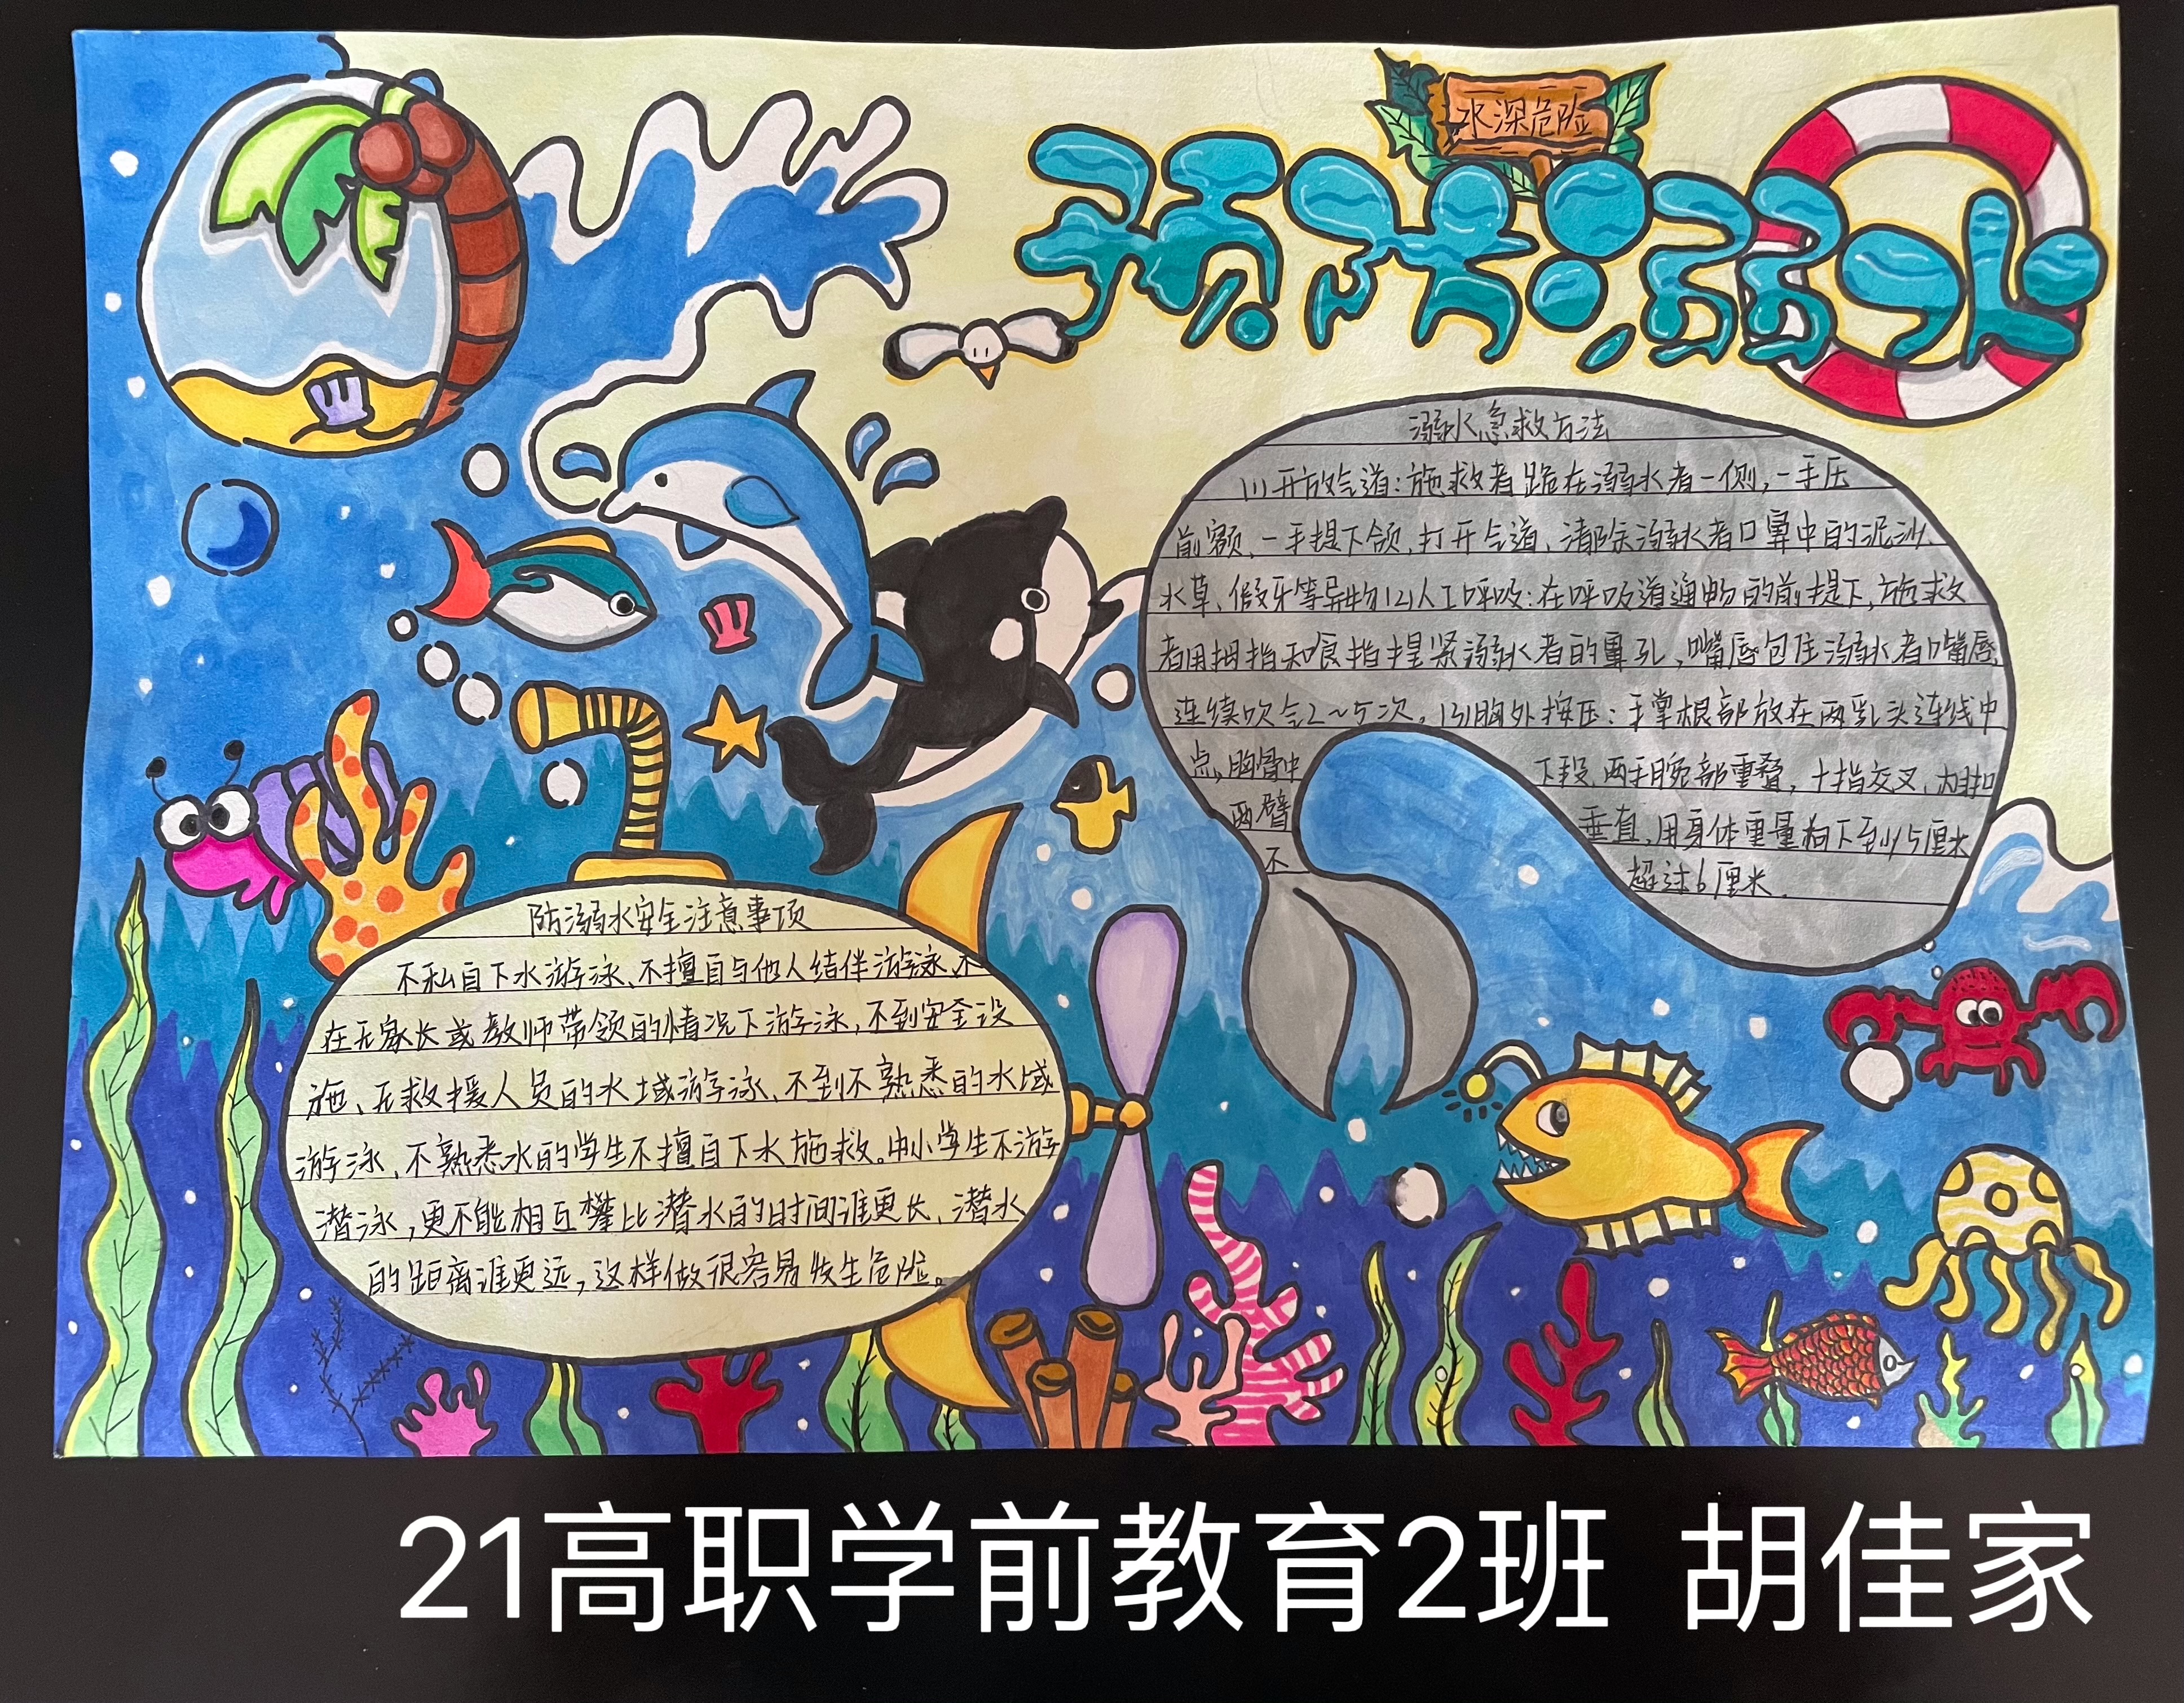 水深危险
预防溺水
溺水急救方法
(1)开放气道:施救者跪在溺水者一侧,一手压
前额、一手提下颌,打开气道、清除溺水者口鼻中的泥沙、
水草、假牙等异物(2)人工呼吸:在呼吸道通畅的前提下,施救
者用拇指和食指捏紧溺水者的鼻孔,嘴唇包住溺水者嘴唇
连续吹气2~5次。(3)胸外按压:手掌根部放在两乳头连线中
点,胸骨中下段、两手腕部重叠,十指交叉、内扣
两臂垂直,用身体重量向下至少5厘米
不超过6厘米。
防溺水安全注意事项
不私自下水游泳、不擅自与他人结伴游泳、不
在无家长或教师带领的情况下游泳,不到安全设
施、无救援人员的水域游泳、不到不熟悉的水域
游泳、不熟悉水的学生不擅自下水施救。中小学生不游
潜泳,更不能相互攀比潜水的时间谁更长、潜水
的距离谁更远,这样做很容易发生危险。
21高职学前教育2班 胡佳家